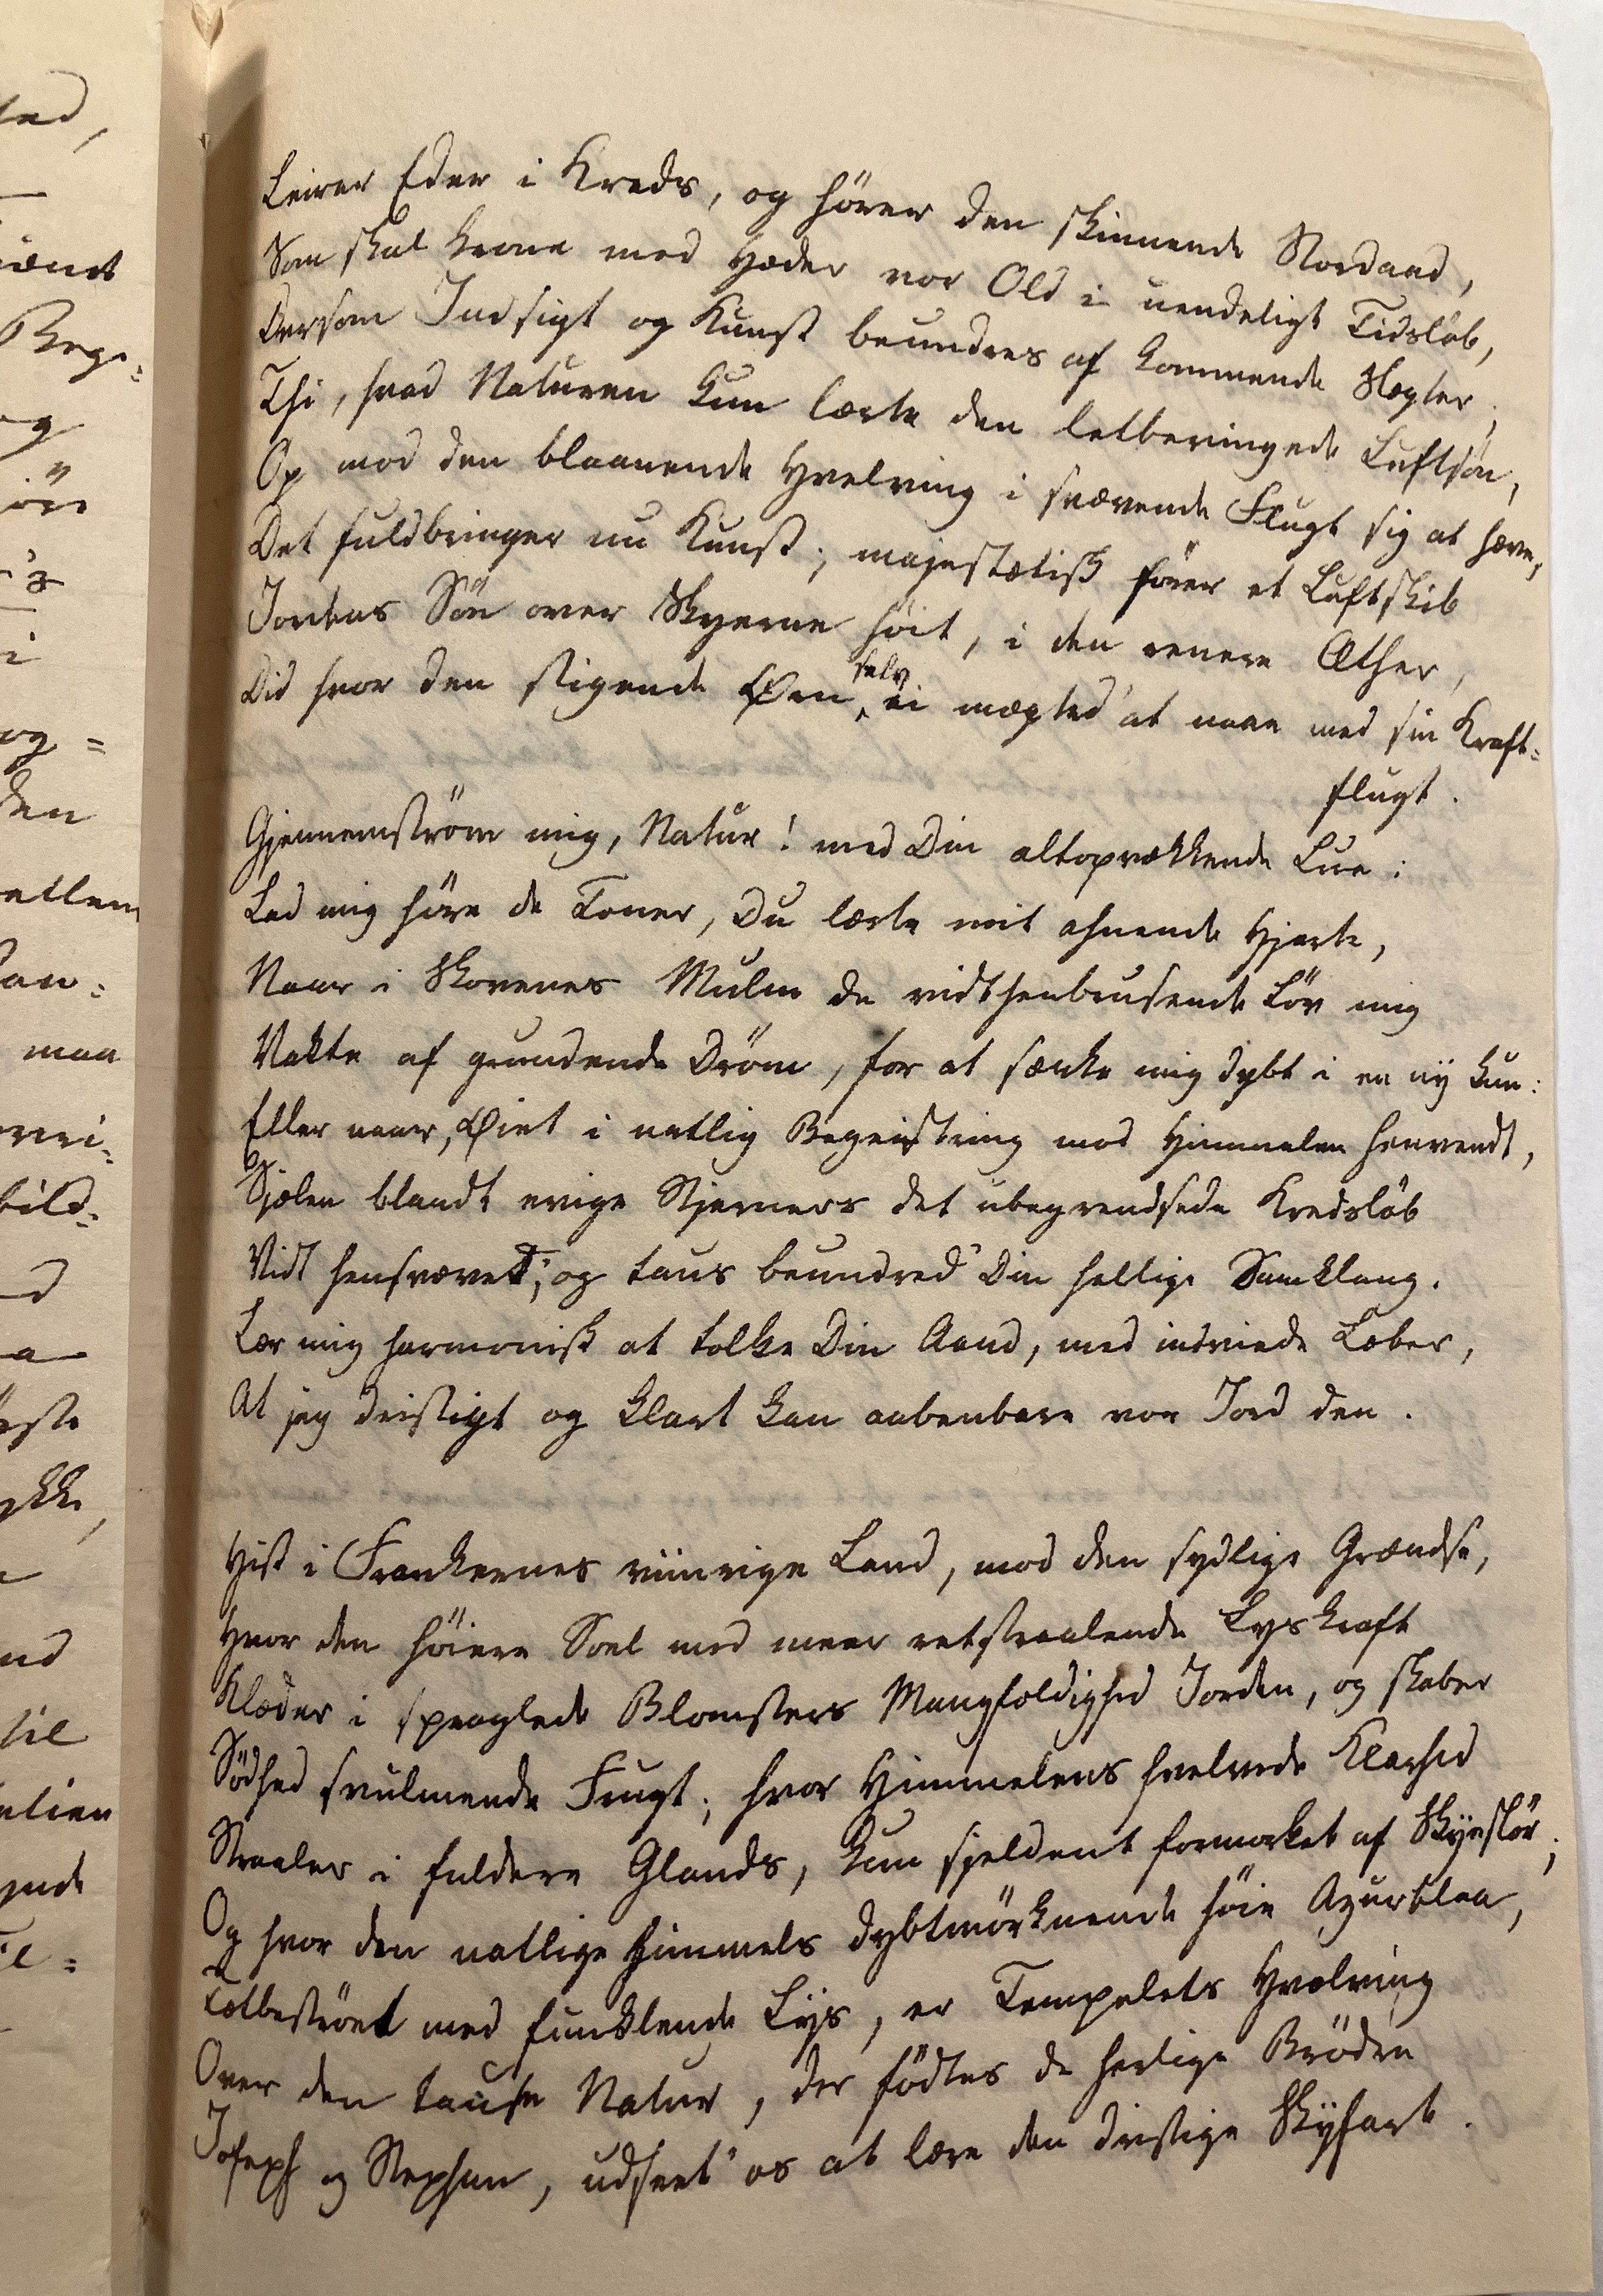 Leirer Eder i Kreds, og hörer den skinnende Stordaad,
Som skal krone med Hæder vor Old i uendeligt Tidslöb,
Dersom Indsigt og Kunst beundres af kommende Slægter;
Thi, hvad Naturen kun lærte den letbevingede Luftsön,
Op mod den blaanende Hvelving i svævende Flugt sig at hæve,
Det fuldbringer nu Kunst; majestætisk förer et Luftskib
Jordens Sön over Skyerne höit, i den renere Æther,
Did hvor den stigende Örn selv ei mægted' at naae med sin Kraft-
flugt.
Gjennemström mig, Natur! med Din altopvækkende Lue:
Lad mig höre de Toner, Du lærte mit ahnende Hjerte,
Naar i Skovenes Mulm de vidthenbrusende Löv mig
Vakte af grundende Dröm, for at sænke mig dybt i en ny kun:
Eller naar, Öiet i natlig Begeistring mod Himmelen henvendt,
Sjælen blandt evige Stjerners det ubegrendsede Kredslöb
Vidt hensvævet, og taus beundred' Din hellige Samklang.
Lær mig harmonisk at tolke Din Aand, med indviede Læber,
At jeg dristigt og klart kan aabenbare vor Jord den.
Hist i Frankernes viinrige Land, mod den sydlige Grændse,
Hvor den höiere Soel med meer retstraalende Lyskraft
Klæder i spraglede Blomsters Mangfoldighed Jorden, og skaber
Södhed svulmende Frugt; hvor Himmelens hvelvede Klarhed
Straaler i fuldere Glands, kun sjeldent formørket af Skyeslör;
Og hvor den natlige Himmels dybtmörknende höie Azurblaa,
Tætbeströet med funklende Lys, er Tempelets Hvælving
Over den tause Natur, der födtes de herlige Brödre
Joseph og Stephan, udseet' os at lære den dristige Skyfart.